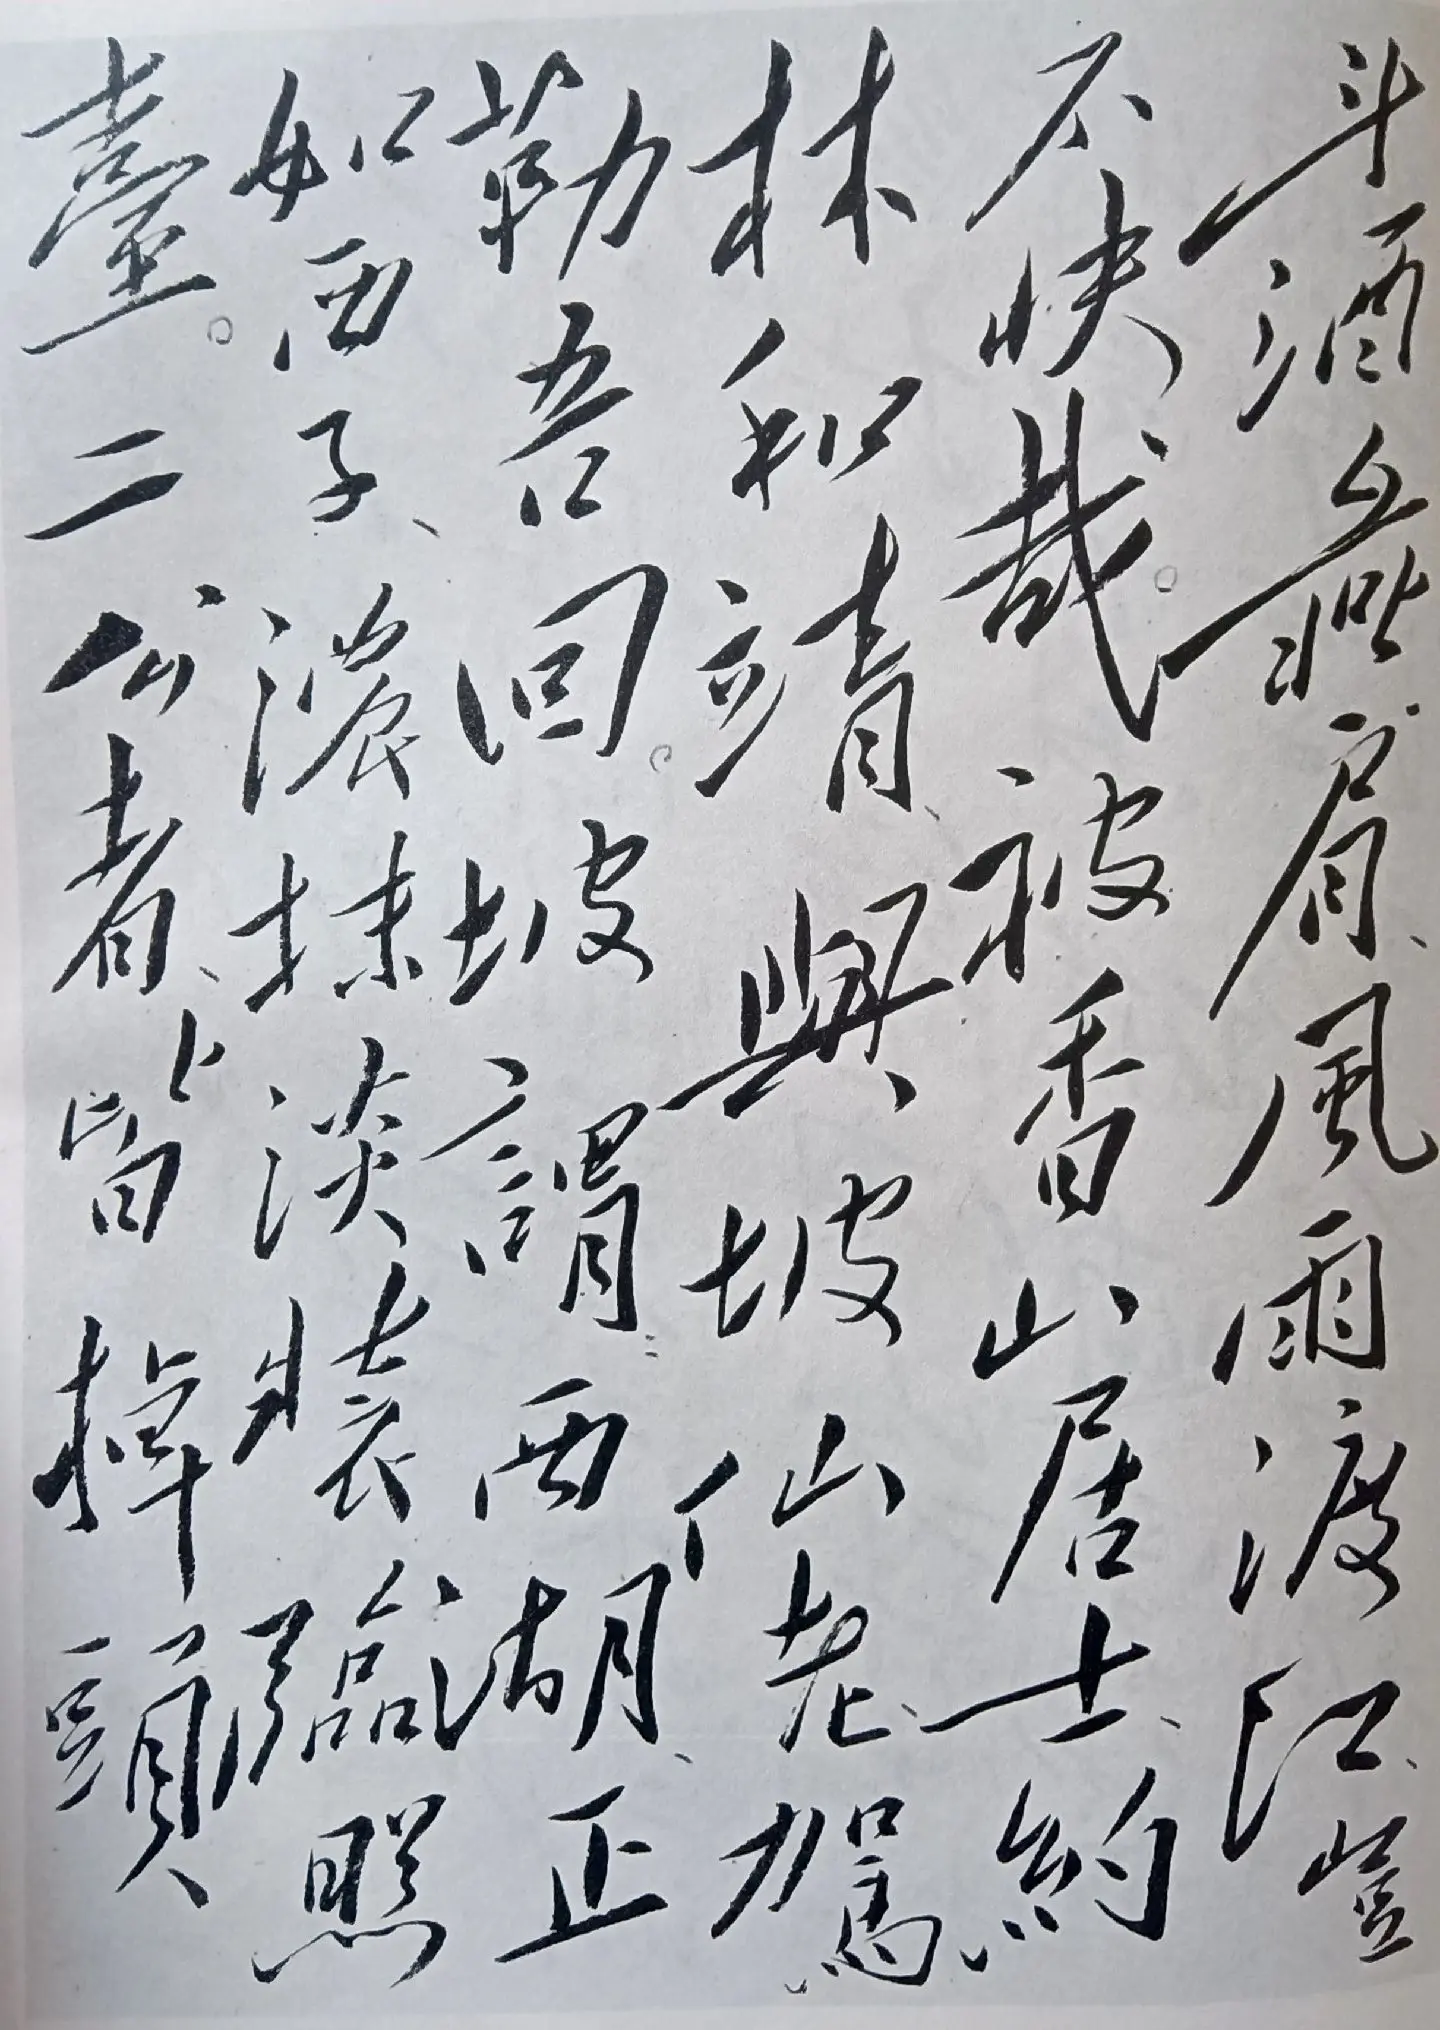 斗酒彘肩、風雨渡江、豈
不快哉。被香山居士、約
林和靖、與坡仙老、駕
勒吾回。坡謂：西湖、正
如西子、濃抹淡裝臨照
臺。二公者、皆掉頭